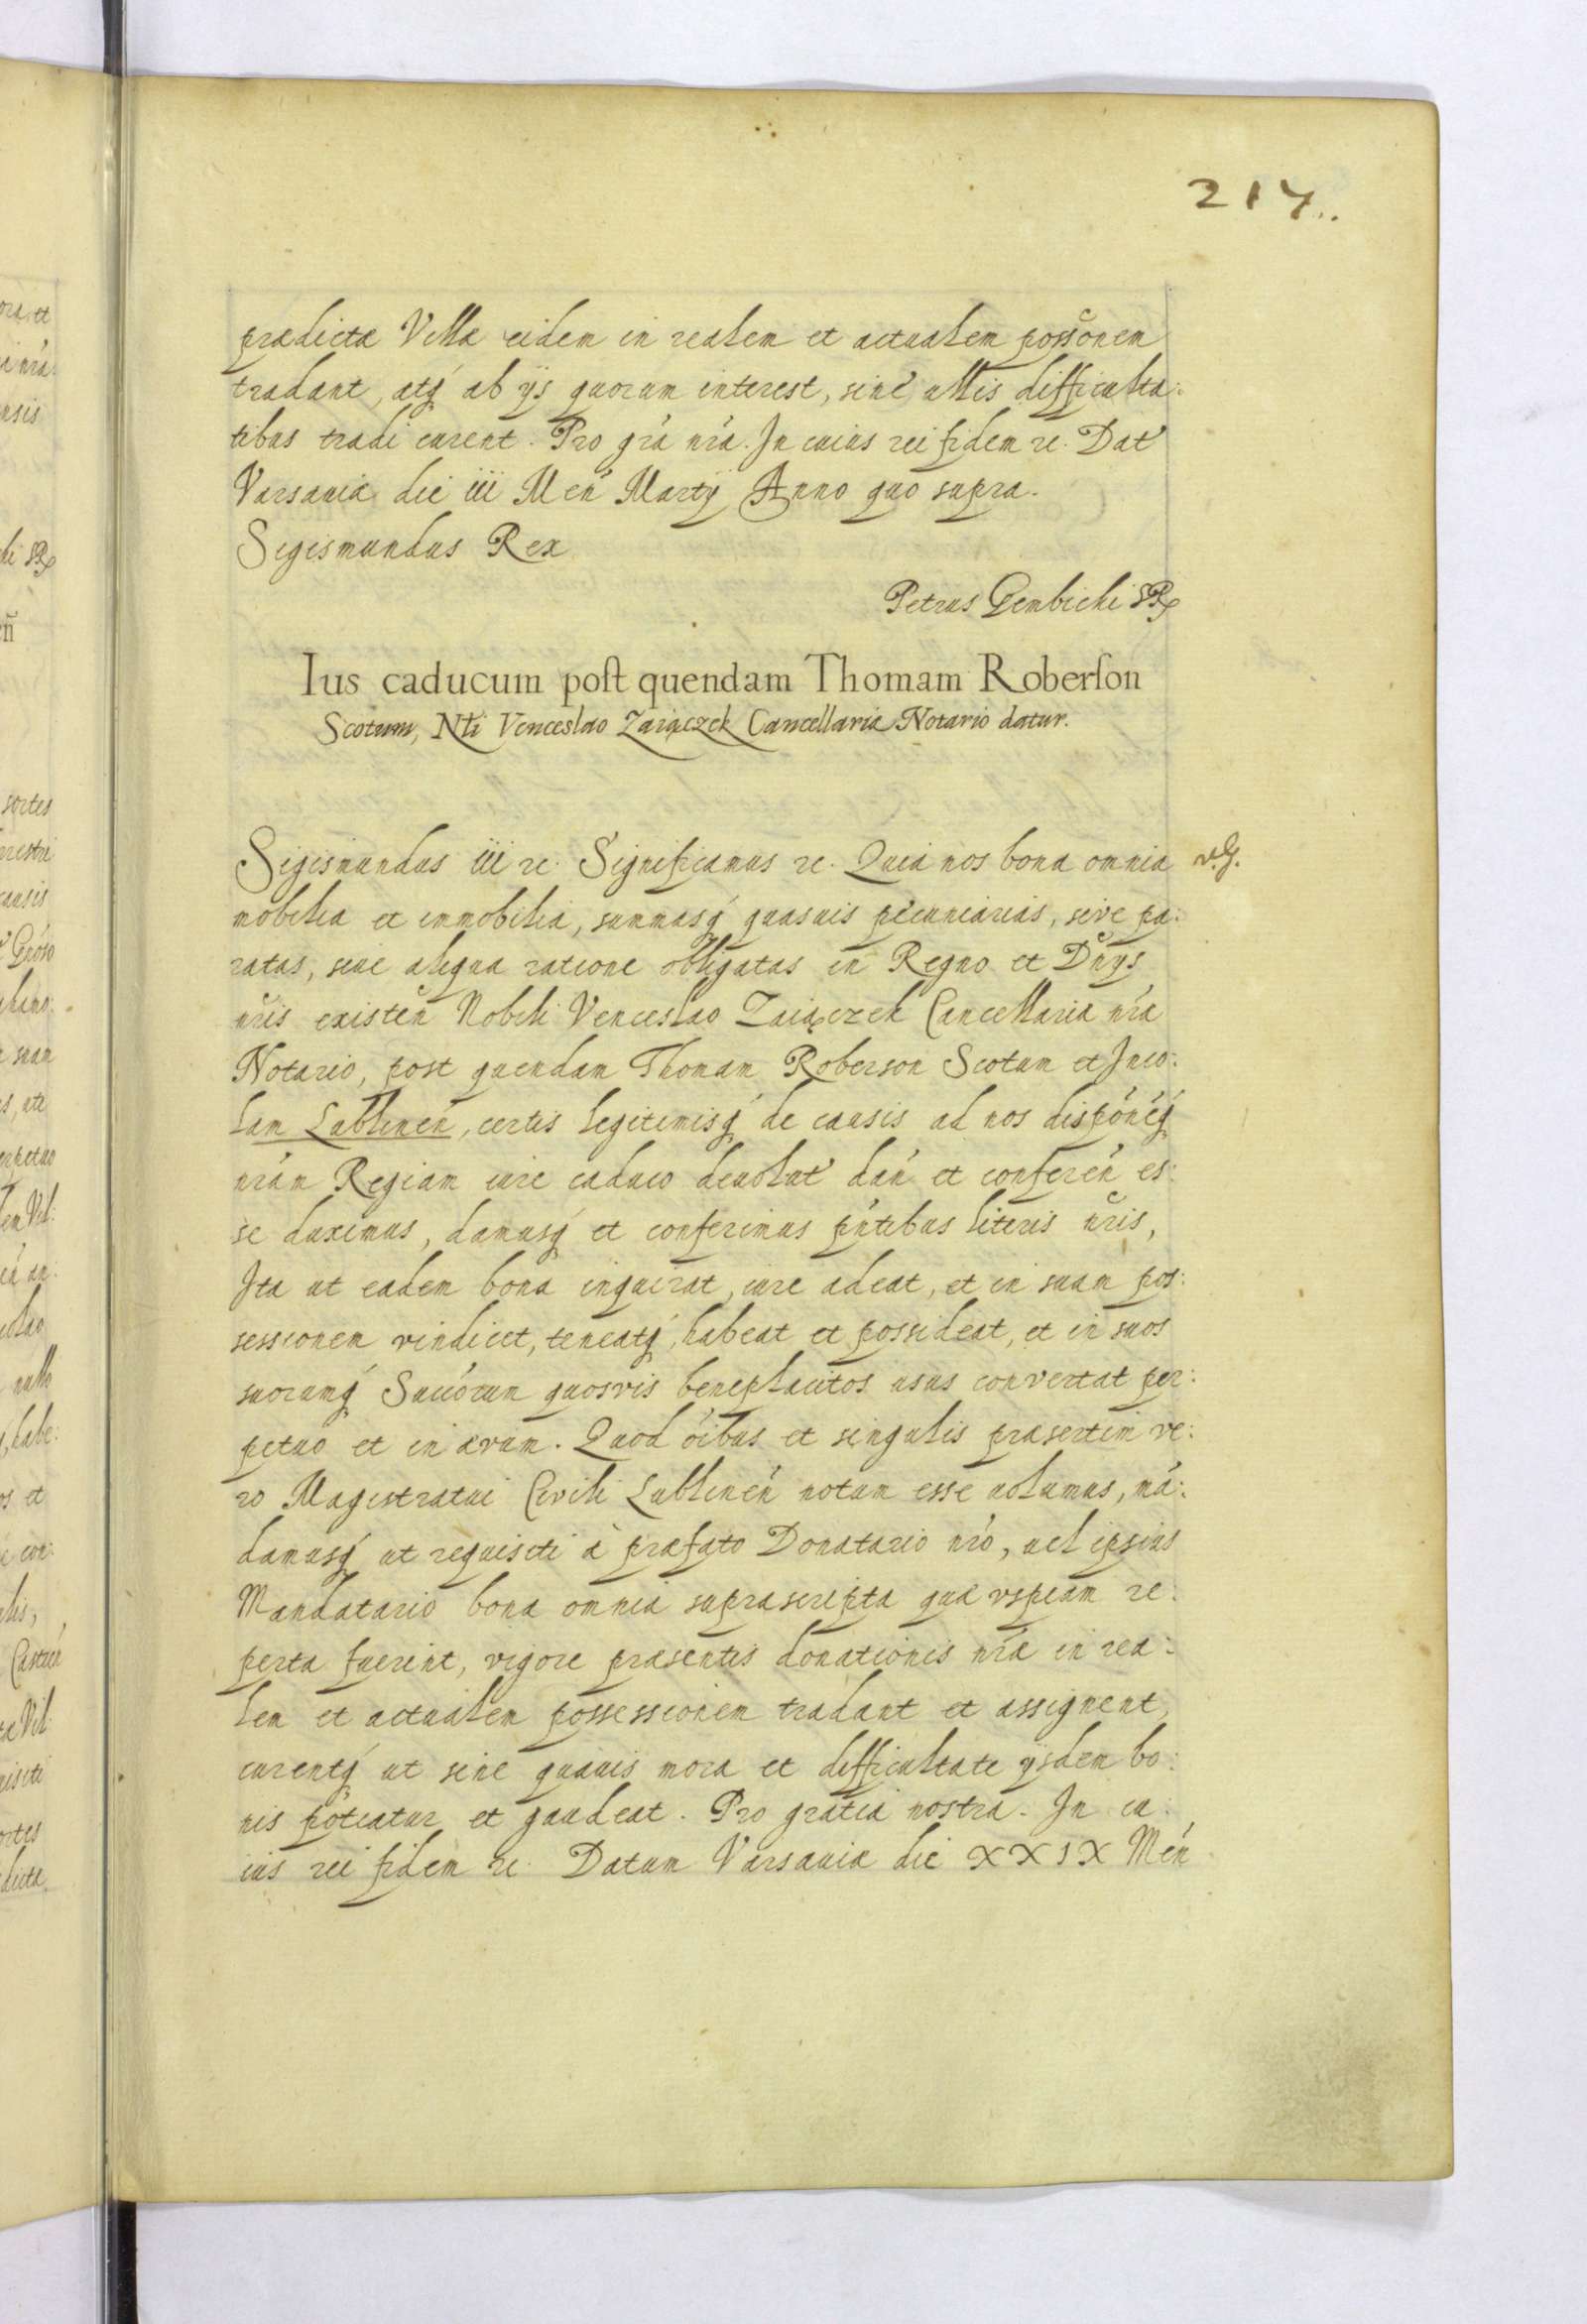 217..
prædictæ Villæ eidem in realem et actualem possõnem
tradant, atq́ ab ijs quorum interest, sine ullis difficulta:
tibus tradi curent. Pro grá nrá. In cuius rei fidem rc. Dat
Varsaviæ die iii Men̄ Martij Anno quo supra.
Sigismundus Rex
Petrus Gembicki SRP
Ius caducum post quendam Thomam Roberson
Scotum, Nli Venceslao Zaiączek Cancellariæ Notario datur.
Sigismundus iii rc. Significamus rc. Quia nos bona omnia
mobilia et immobilia, summasq́ quasuis pecuniarias, sive pa:
ratas, siue aliqua ratione obligatas in Regno et Dn̄ys
nr̄is existen̄ Nobili Venceslao Zaiączek Cancellariæ nrǽ
Notario, post quendam Thomam Roberson Scotum et Inco:
lam Lublinen̄, certis legitimisq́ de causis ad nos dispónéq́
nrám Regiam iure caduco deuolut dań et conferén es:
se duximus, damusq́ et conferimus pńtibus literis nr̄is,
Ita ut eadem bona inquirat, iure adeat, et in suam pos:
sessionem vindicet, teneatq́, habeat et possideat, et in suos
suorumq́ Succórum quosvis beneplacitos usus convertat per:
petuo et in ævum. Quod óibus et singulis præsertim ve:
ro Magistratui Civili Lublinén notum esse uolumus, má:
damusq́ ut requisiti à præfato Donatario nró, uel ipsius
Mandatario bona omnia suprascripta quæ vspiam re:
perta fuerint, vigore præsentis donationis nrǽ in rea:
lem et actualem possessionem tradant et assignent,
curentq́ ut sine quauis mora et difficultate ijsdem bo:
nis potiatur et gaudeat. Pro gratia nostra. In cu:
ius rei fidem rc. Datum Varsauiæ die XXIX Mén